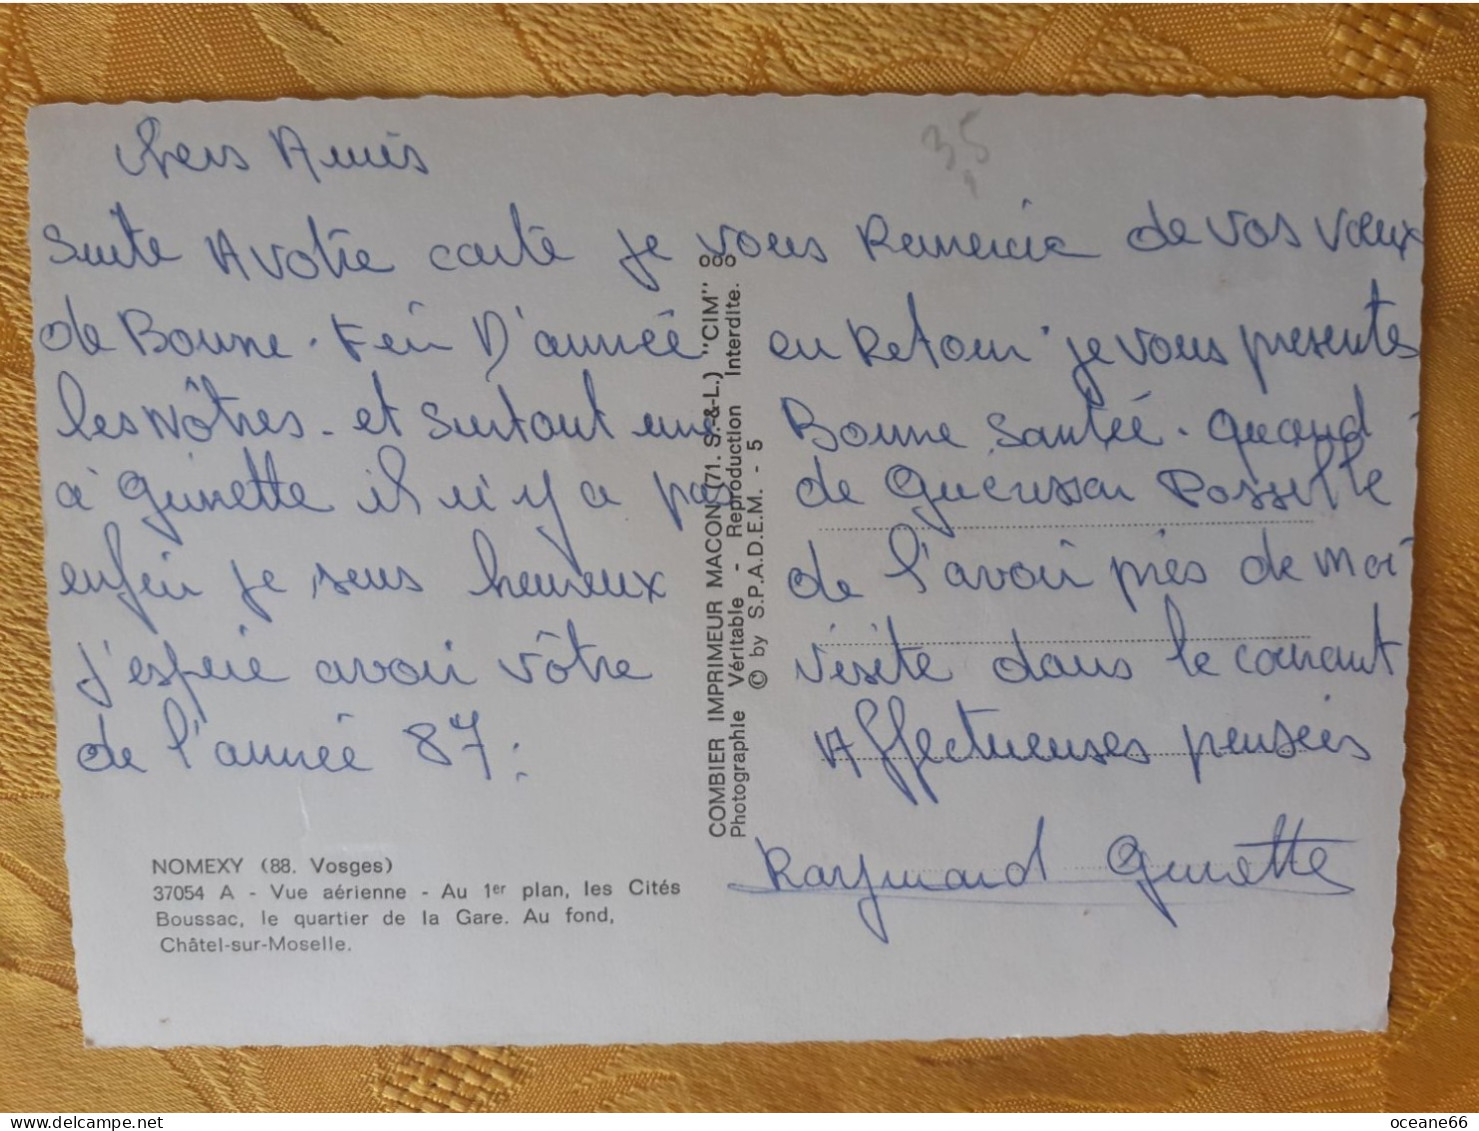 chers Amis
Suite A votre carte je vous Remercie de vos vœux
de Bonne. Fin D'année en Retour. je vous presentes
les Nôtres. et surtout une Bonne Santéé. quand
à Ginette il n'y a pas de Guérison Possible
enfin je suis heureux de l'avoir près de moi
j'espere avoir vôtre visite dans le courant
de l'année 87.
Affectueuses pensées
Raymond Ginette
35
NOMEXY (88. Vosges)
37054 A - Vue aérienne - Au 1er plan, les Cités
Boussac, le quartier de la Gare. Au fond,
Châtel-sur-Moselle.
COMBIER IMPRIMEUR MACON (71. S.-&-L.) "CIM"
Photographie Véritable - Reproduction Interdite.
© by S.P.A.D.E.M. - 5
oceane66